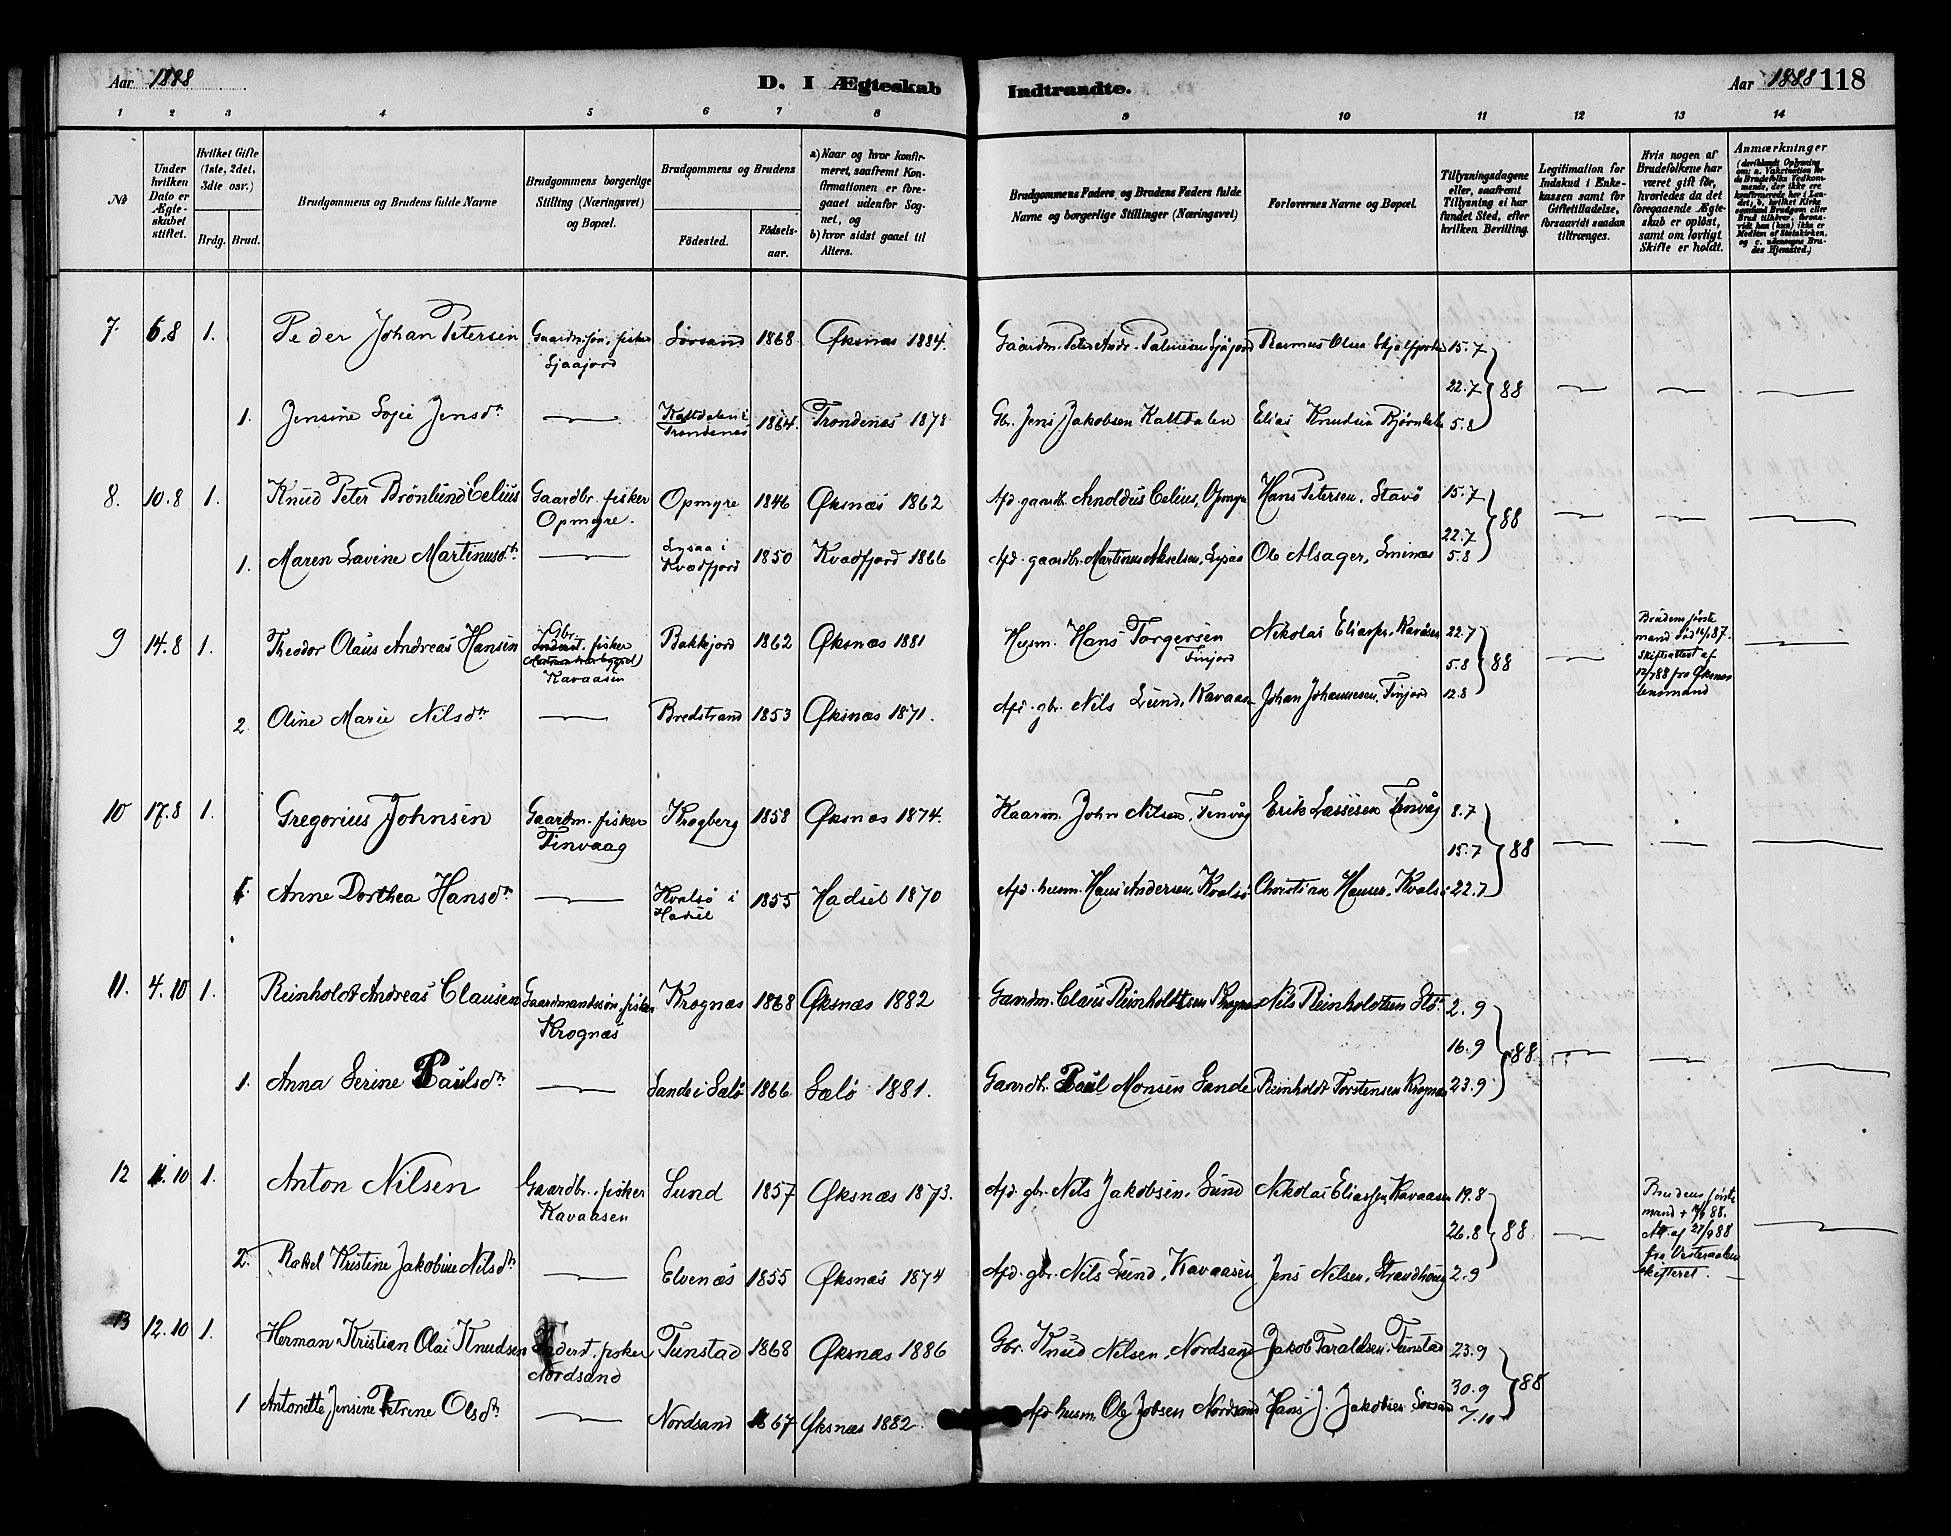 Aar 1888
D. I Ægteskab Indtraadte.
Aar 1888 118
1 2 3 4 5 6 7 8 9 10 11 12 13 14
No
Under hvilken Dato er Ægteskabet stiftet.
Hvilket Gifte (1ste, 2det, 3die osv.)
Brdg. Brud.
Brudgommens og Brudens fulde Navne
Brudgommens borgerlige Stilling (Næringsvei) og Bopæl.
Brudgommens og Brudens
Fødested. Fødselsaar.
a) Naar og hvor konfirmeret, saafremt Konfirmationen er foregaaet udenfor Sognet, og
b) hvor sidst gaaet til Alters.
Brudgommens Faders og Brudens Faders fulde Navne og borgerlige Stillinger (Næringsvei)
Forlovernes Navne og Bopæl.
Tillysningsdagene eller, saafremt Tillysning ei har fundet Sted, efter hvilken Bevilling.
Legitimation for Indskud i Enkekassen samt for Giftetilladelse, forsaavidt saadan tiltrænges.
Hvis nogen af Brudefolkene har været gift før, hvorledes da det foregaaende Ægteskab er opløst, samt om lovligt Skifte er holdt.
Anmærkninger
7. 6.8 1. Peder Johan Petersen Gaardm.søn, fisker Sjaajord Sørsand 1868 Øksnæs 1884. Gaardm. Peter Andr. Sjåjord Rasmus Olsen 15.7
22.7 88
1. Jensine Sofie Jensdtr Kaltdalen i Trondenæs 1864. Trondenæs 1878 Gbr. Jens Jakobsen Kaltdalen Elias Knudsen 5.8
8. 10.8 1. Knud Peter Brønlund Celius Gaardbr. fisker Opmyre. Opmyre 1846 Øksnæs 1862 Afd. gaardb. Arnoldus Celius, Opmyre Hans Petersen, Stavø 15.7
22.7 88
1. Maren Lavine Martinusdtr. Lysaa i Kvædfjord 1850 Kvædfjord 1866 Afd. gaardbr. Martinus Akselsen, Lysaa Ole Alsager, Sminæs 5.8
9 14.8 1. Theodor Olaus Andreas Hansen Gbr. fisker Kavaasen Bakkjord 1862 Øksnæs 1881 Husm. Hans Torgersen Tinjord Nikolai Eliass., Kavåsen 22.7
5.8 88
Brudens første mand død 14/1 87. Skifteattest af 12/7 88 fra Øksnes lensmand
2. Oline Marie Nilsdtr Bredstrand 1853 Øksnæs 1871. Afd. gbr. Nils Lund, Kavaasen Johan Johannesen, Tinjord 12.8
10 17.8 1. Gregorius Johnsen Gaardm. fisker Tinvaag Krogberg 1858 Øksnæs 1874. Kaarm. John Nilsen, Tinvåg Erik Lassesen Tinvåg 8.7
15.7 88
1. Anne Dorthea Hansdtr Kvalsø i Hadsel 1855 Hadsel 1870 Afd. husm. Hans Andersen, Kvalsø Christian Hansen, Kvalsø 22.7
11. 4.10 1. Reinholdt Andreas Clausen Gaardmandssøn, fisker Krognæs Krognæs 1868 Øksnæs 1882 Gaardm. Claus Reinholdtsen Krognæs Nils Reinholdtsen Stø. 2.9
16.9 88
1. Anna Serine Paulsdtr Sande i Sælø 1866 Sælø 1881. Gaardb. Paul Monsen Sande Reinholdt Torstensen Krognæs 23.9
12 11.10 1. Anton Nilsen Gaardbr., fisker Kavaasen Lund 1857 Øksnæs 1873. Afd. gbr. Nils Jakobsen, Lund Nikolai Eliassen Kavaasen 19.8
26.8 88
Brudens første mand + 88. Att. af 27/9 88 fra Vesteraalens skifteret.
2. Rakel Kristine Jakobine Nilsdtr Elvenæs 1855 Øksnæs 1874 Afd. gbr. Nils Lund, Kavaasen Jens Nilsen, Strandhoug 2.9
13 12.10 1. Herman Kristian Olai Knudsen Inderst, fisker Nordsand Tunstad 1868 Øksnæs 1886 Gbr. Knud Nilsen, Nordsand Jakob Taraldsen, Tunstad 23.9
30.9 88
1 Antonette Jensine Petrine Olsdtr Nordsand 1867 Øksnæs 1882. Afd. husm. Ole Jobsen Nordsand Hans J. Jakobsen Sørsand 7.10